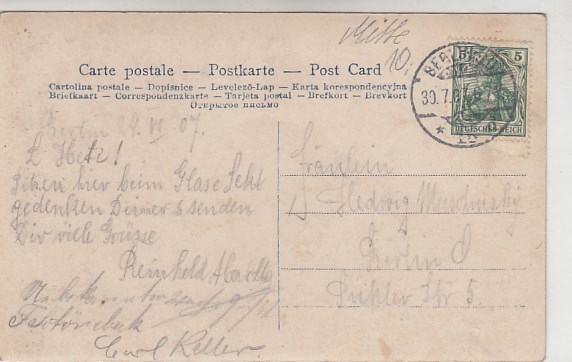 Mitte
10.
Carte postale — Postkarte — Post Card
Cartolina postale — Dopisnice — Levelező-Lap — Karta korespondencyjna
Briefkaart — Correspondenzkarte — Tarjeta postal — Brefkort — Brevkort
Открытое письмо
5
BERLIN
30.7.
DEUTSCHES REICH
Berlin 29. VII 07.
L Hete!
Sitzen hier beim Glase Sekt
gedenken Deiner & senden
Dir viele Grüsse
Reinhold
Carl Keller.
Fräulein
Hedwig
Berlin O
Str 5